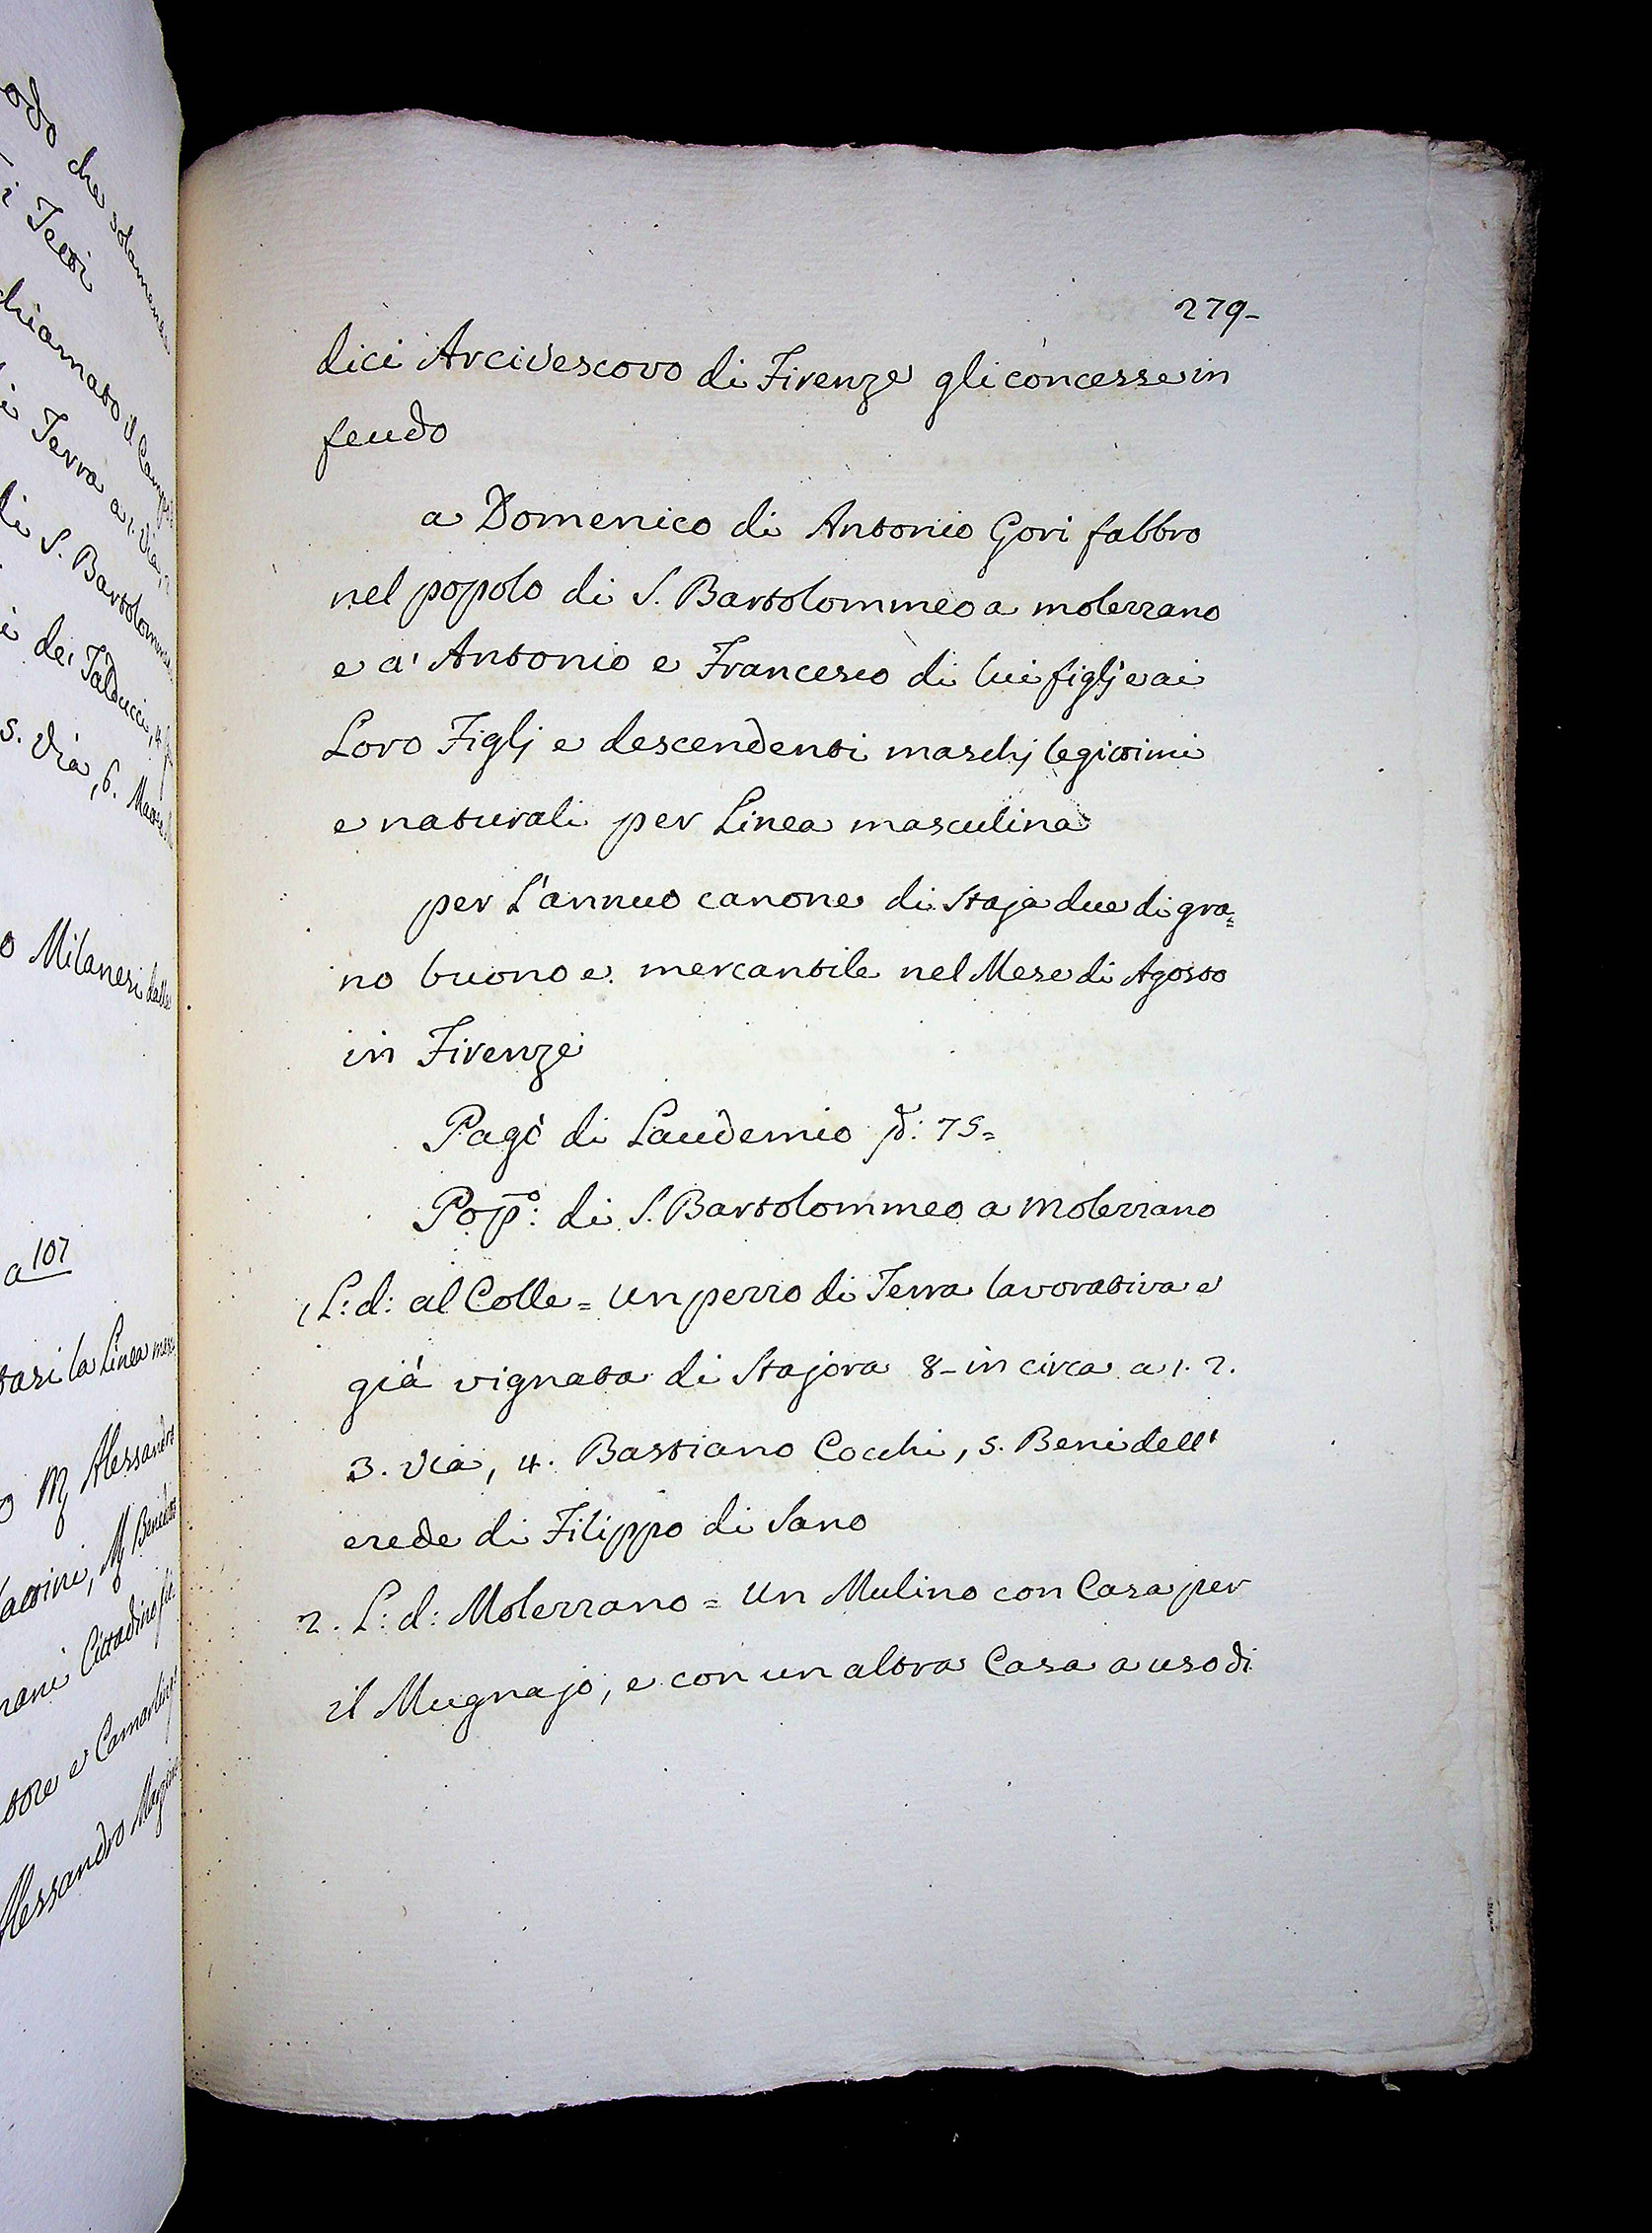 279-
dici Arcivescovo di Firenze gli concesse in
feudo
a Domenico di Antonio Gori fabbro
nel popolo di S. Bartolommeo a molezzano
e a' Antonio e Francesco di lui figlj e ai
Loro Figlj e descendenti maschj legittimi
e naturali per Linea masculina
per L'annuo canone di Staja due di gra=
no buono e mercantile nel Mese di Agosto
in Firenze
Pagò di Laudemio : 75=
Popo: di S. Bartolommeo a Molezzano
1 L: d: al Colle = Un pezzo di Terra lavorativa e
già vignata di Stajora 8- in circa a 1. 2.
3. Via, 4. Bastiano Cocchi, 5. Beni dell'
erede di Filippo di Sano
2. L: d: Molezzano = Un Mulino con Casa per
il Mugnajo, e con un altra Casa a uso di
che solamente
i Terra a 1. Via, 2
di S. Bartolommeo
5. Via, 6.
o Milanesi dalla
a 107
la Linea
Alessandro
Cittadino
Alessandro